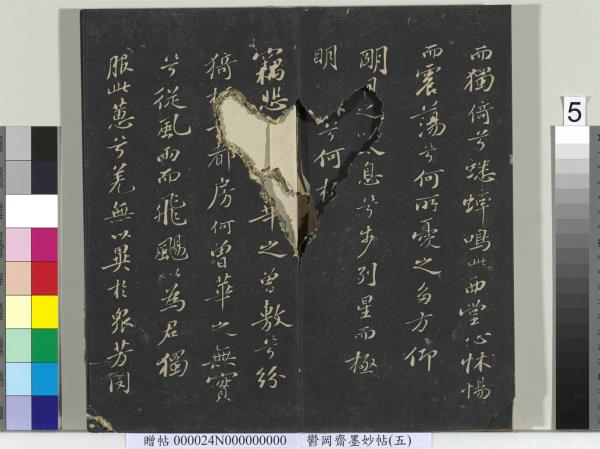 而獨倚兮蟋蟀鳴此西堂心怵惕
而震蕩兮何所憂之多方仰
明月息兮步列星而極
明兮何
竊悲華之曾敷兮紛
猗都房何曾華之無實
兮從風雨而飛颺以為君獨
服此蕙兮羌無以異於衆芳閔
5
贈帖 000024N000000000 鬱岡齋墨妙帖(五)